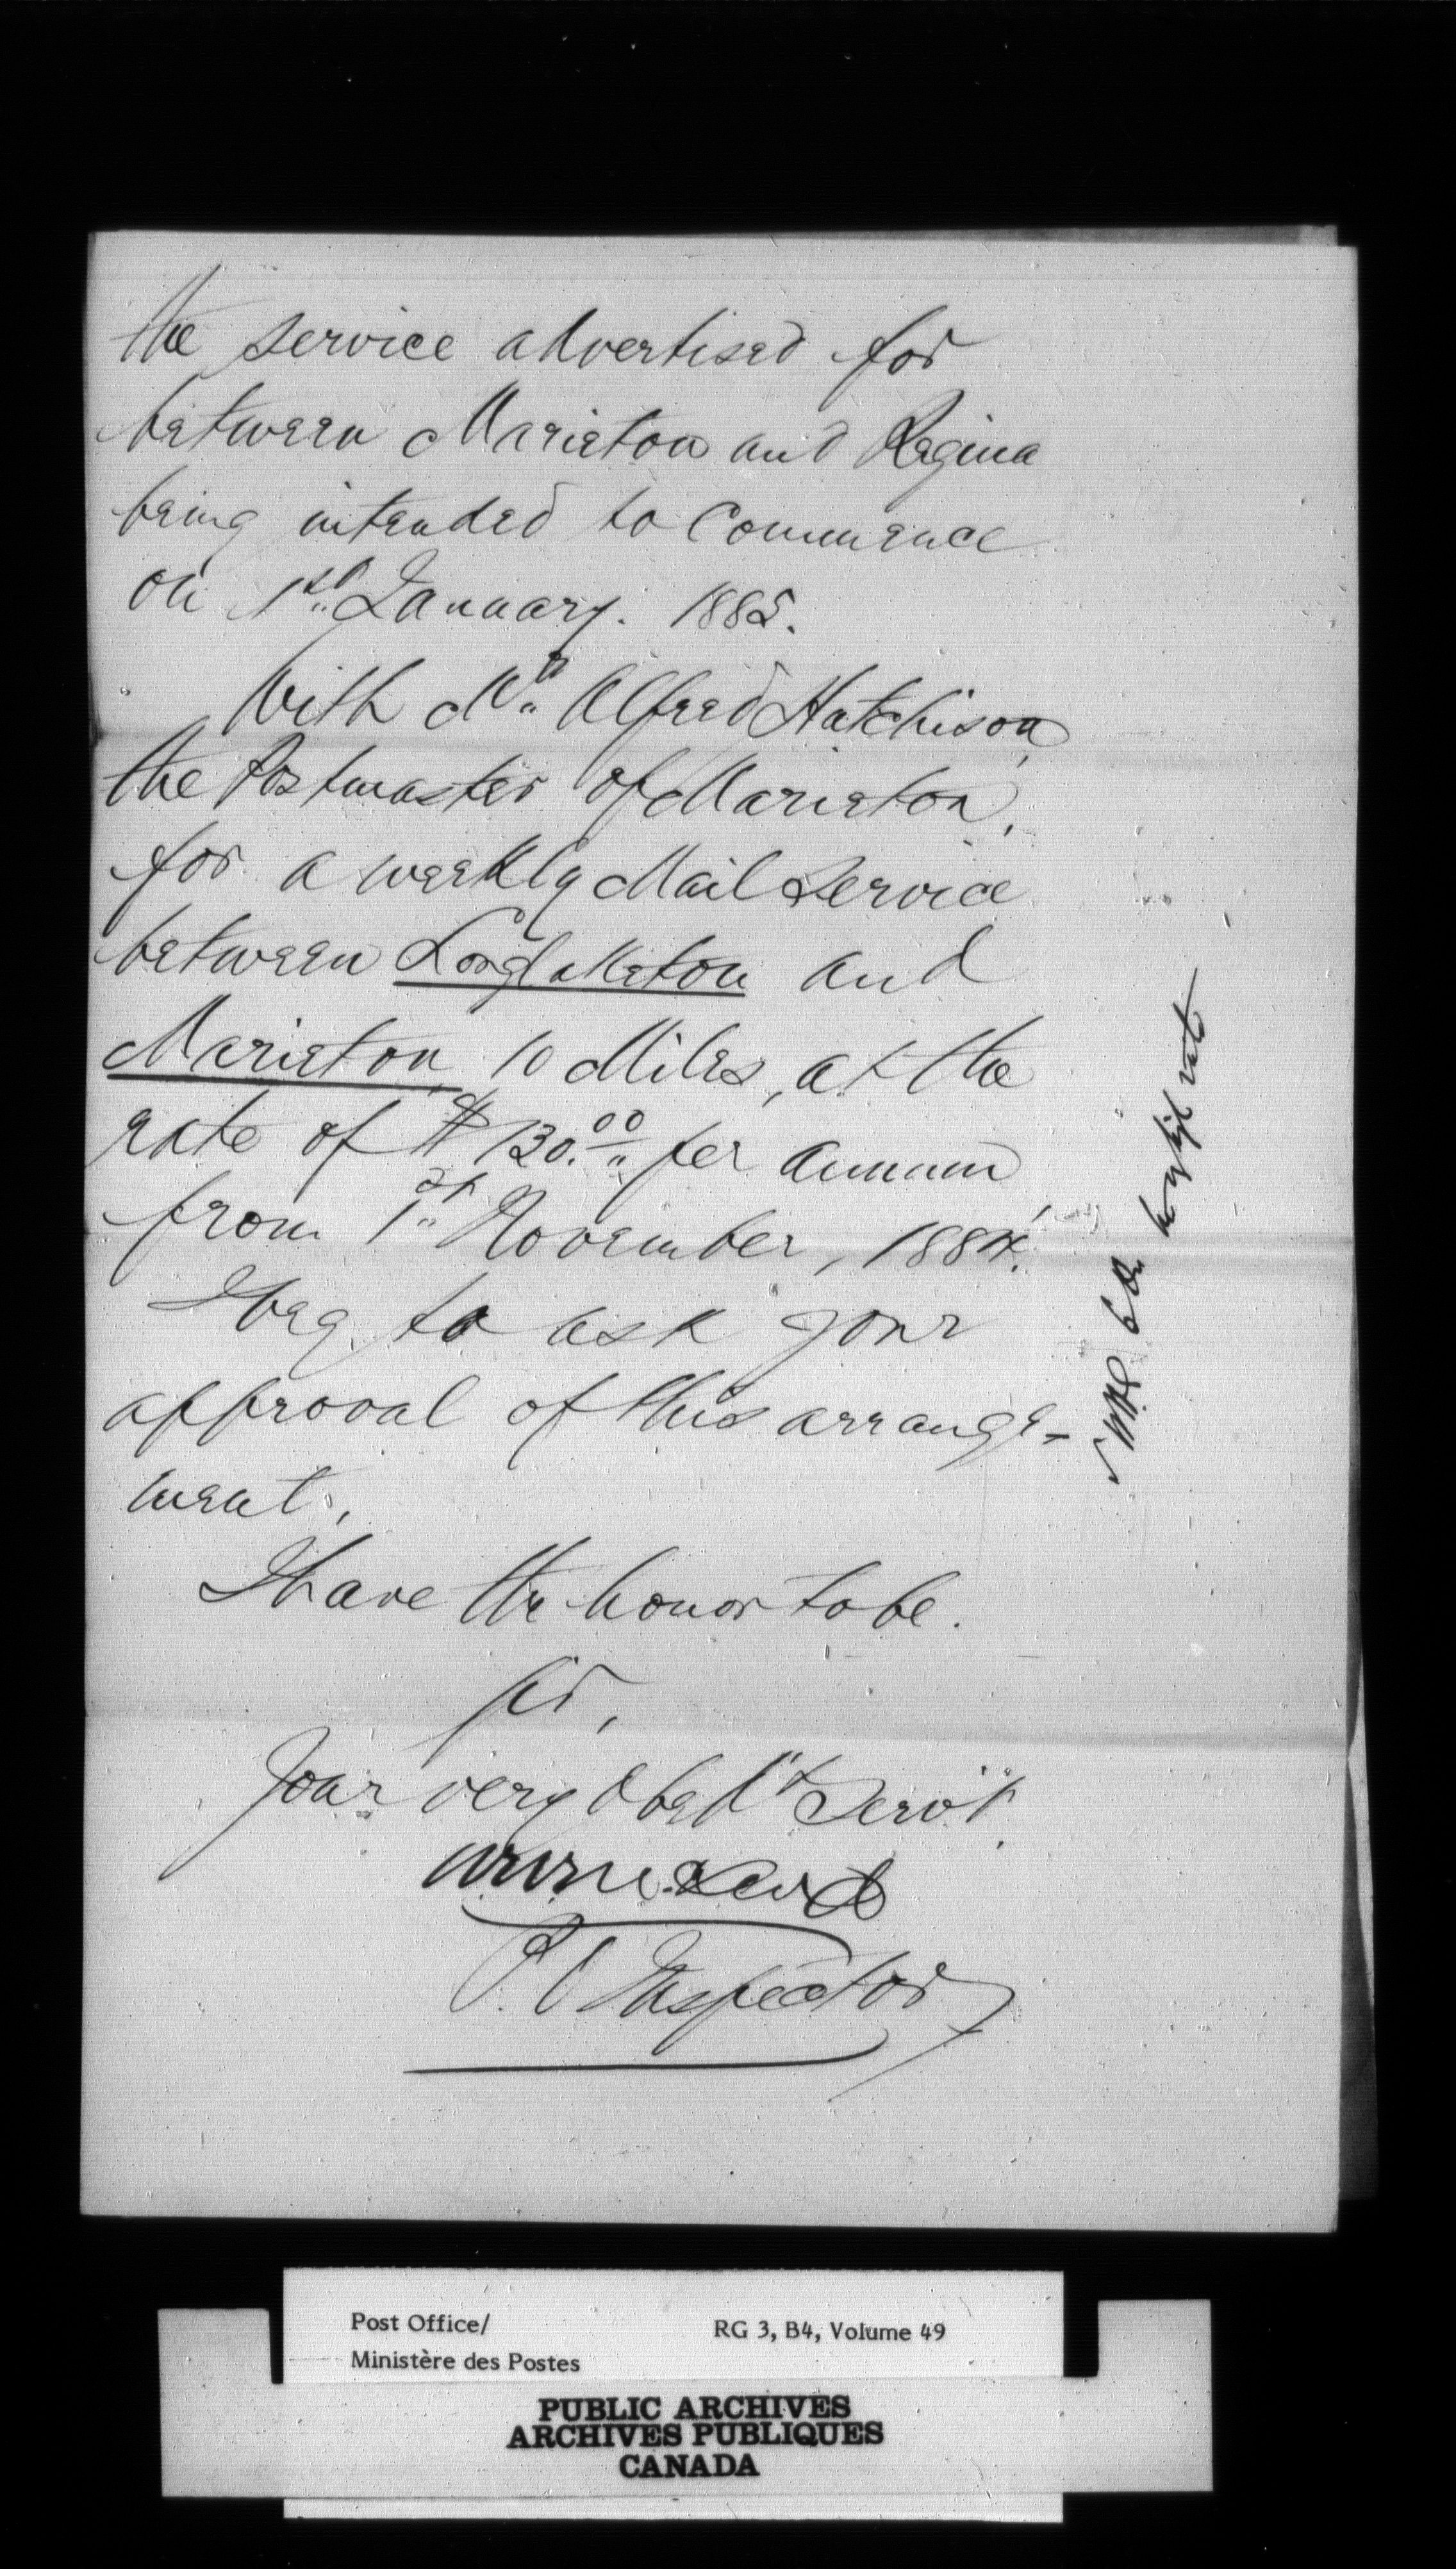 the service advertised for
between Marieton and Regina
being intended to Commence
on 1st January. 1885.
With Mr. Alfred Hutchison,
the Postmaster of Marieton,
for a weekly Mail Service
between Longlaketon and
Marieton, 10 Miles, at the
rate of $130.00 per annum
from 1st November, 1884.
I beg to ask your
approval of this arrange-
ment,
I have the honor to be.
Sir,
Your very Obed't Serv't.
P. O Inspector
rate
Post Office/
Ministère des Postes
RG 3, B4, Volume 49
PUBLIC ARCHIVES
ARCHIVES PUBLIQUES
CANADA